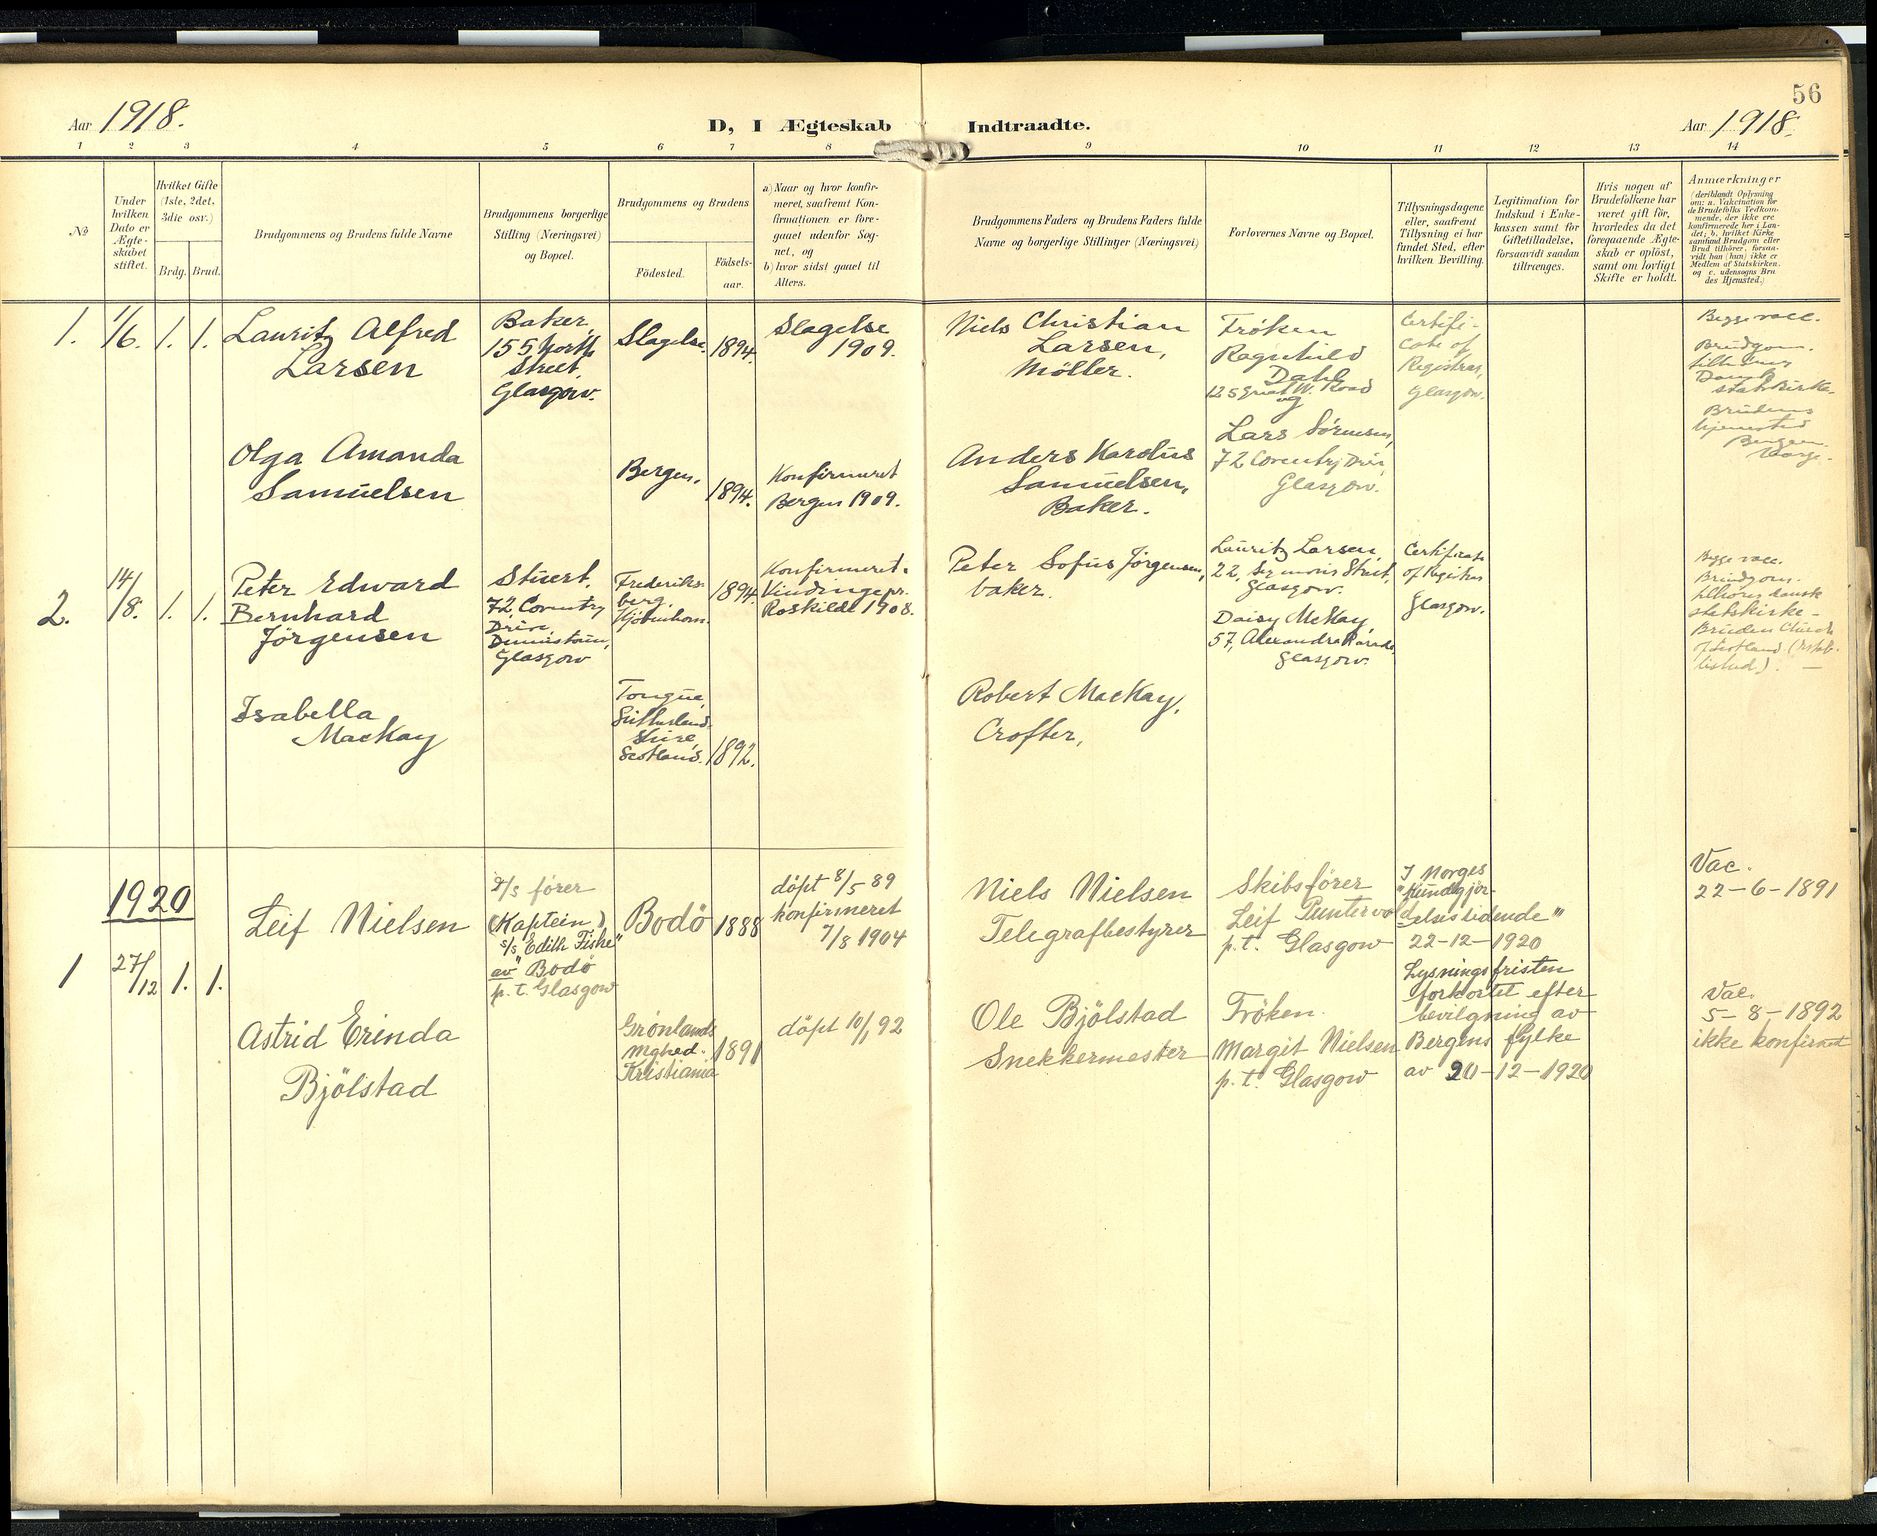 56
Aar 1918.
D, I Ægteskab Indtraadte.
Aar 1918.
1 2 3 4 5 6 7 8 9 10 11 12 13 14
No
Under hvilken Dato er Ægteskabet stiftet.
Hvilket Gifte (1ste, 2det, 3die osv.)
Brdg. Brud.
Brudgommens og Brudens fulde Navne
Brudgommens borgerlige Stilling (Næringsvei) og Bopæl.
Brudgommens og Brudens
Födested.
Födselsaar.
a) Naar og hvor konfirmeret, saafremt Konfirmationen er foregaaet udenfor Sognet, og
b) hvor sidst gaaet til Alters.
Brudgommens Faders og Brudens Faders fulde Navne og borgerlige Stillinger (Næringsvei)
Forlovernes Navne og Bopæl.
Tillysningsdagene eller, saafremt Tillysning ei har fundet Sted, efter hvilken Bevilling.
Legitimation for Indskud i Enkekassen samt for Giftetilladelse, forsaavidt saadan tiltrænges.
Hvis nogen af Brudefolkene har været gift för, hvorledes da det foregaaende Ægteskab er oplöst, samt om lovligt Skifte er holdt.
Anmærkninger
(deriblandt Oplysning om: a. Vakcination for de Brudefolks Vedkommende, der ikke ere konfirmerede her i Landet; b. hvilket Kirkesamfund Brudgom eller Brud tilhörer, forsaavidt han (hun) ikke er Medlem af Statskirken. og c. udensogns Brudes Hjemsted.)
1. 1/6. 1. 1.
Lauritz Alfred
Larsen
Baker,
155 North
Street,
Glasgow.
Slagelse. 1894.
Slagelse
1909.
Niels Christian
Larsen,
Möller.
Fröken
Ragnhild
Dahl
125 Great W. Road
og
Lars Sörensen,
72 Coventry Drive,
Glasgow.
Certifi-
cate of
Registrar,
Glasgow.
Begge vacc.
Brudgom.
tilhörer
Dansk
statskirke.
Brudens
hjemsted
Bergen.
Norge.
Olga Amanda
Samuelsen
Bergen. 1894.
Konfirmeret
Bergen 1909.
Anders Karolus
Samuelsen,
Baker.
2. 14/8. 1. 1.
Peter Edward
Bernhard
Jörgensen
72, Coventry
Drive,
Dennistoun,
Glasgow
Frederiks-
berg,
Kjöbenhavn.
1894.
Konfirmeret.
Vindinge pr.
Roskilde 1908.
Peter Sofus Jörgensen,
baker.
Lauritz Larsen,
22, Seymour Street,
Glasgow.
Daisy McKay,
57, Alexandra Parade
Glasgow.
Certificate
of Registrar
Glasgow.
Begge vacc.
Brudgom.
tilhörer dansk
statskirke —
Bruden Church
of Scotland (Estab-
lished). —
Isabella
MacKay
Tongue,
Sutherland
Shire,
Scotland.
1892.
Robert MacKay,
Crofter,
1920
1 27/12 1. 1.
Leif Nielsen
D/S förer
(Kaptein)
s/s "Edith Fiske"
av "Bodö
p. t. Glasgow
Bodö 1888
döpt 8/5 89
konfirmeret
7/8 1904
Niels Nielsen
Telegrafbestyrer
Skibsförer
Leif Puntervold
p. t. Glasgow
I Norges
"Kundgjör-
elsistidende"
22-12-1920
Lysningsfristen
forkortet efter
bevilgning av
Bergens fylke
av 20-12-1920
Vac.
22-6-1891
Astrid Erinda
Bjölstad
Grönlands
mghed.
Kristiania
1891
döpt 10/1 92
Ole Bjölstad
Snekkermester
Fröken.
Margit Nielsen
p. t. Glasgow
Vac.
5-8-1892
ikke konfirmert